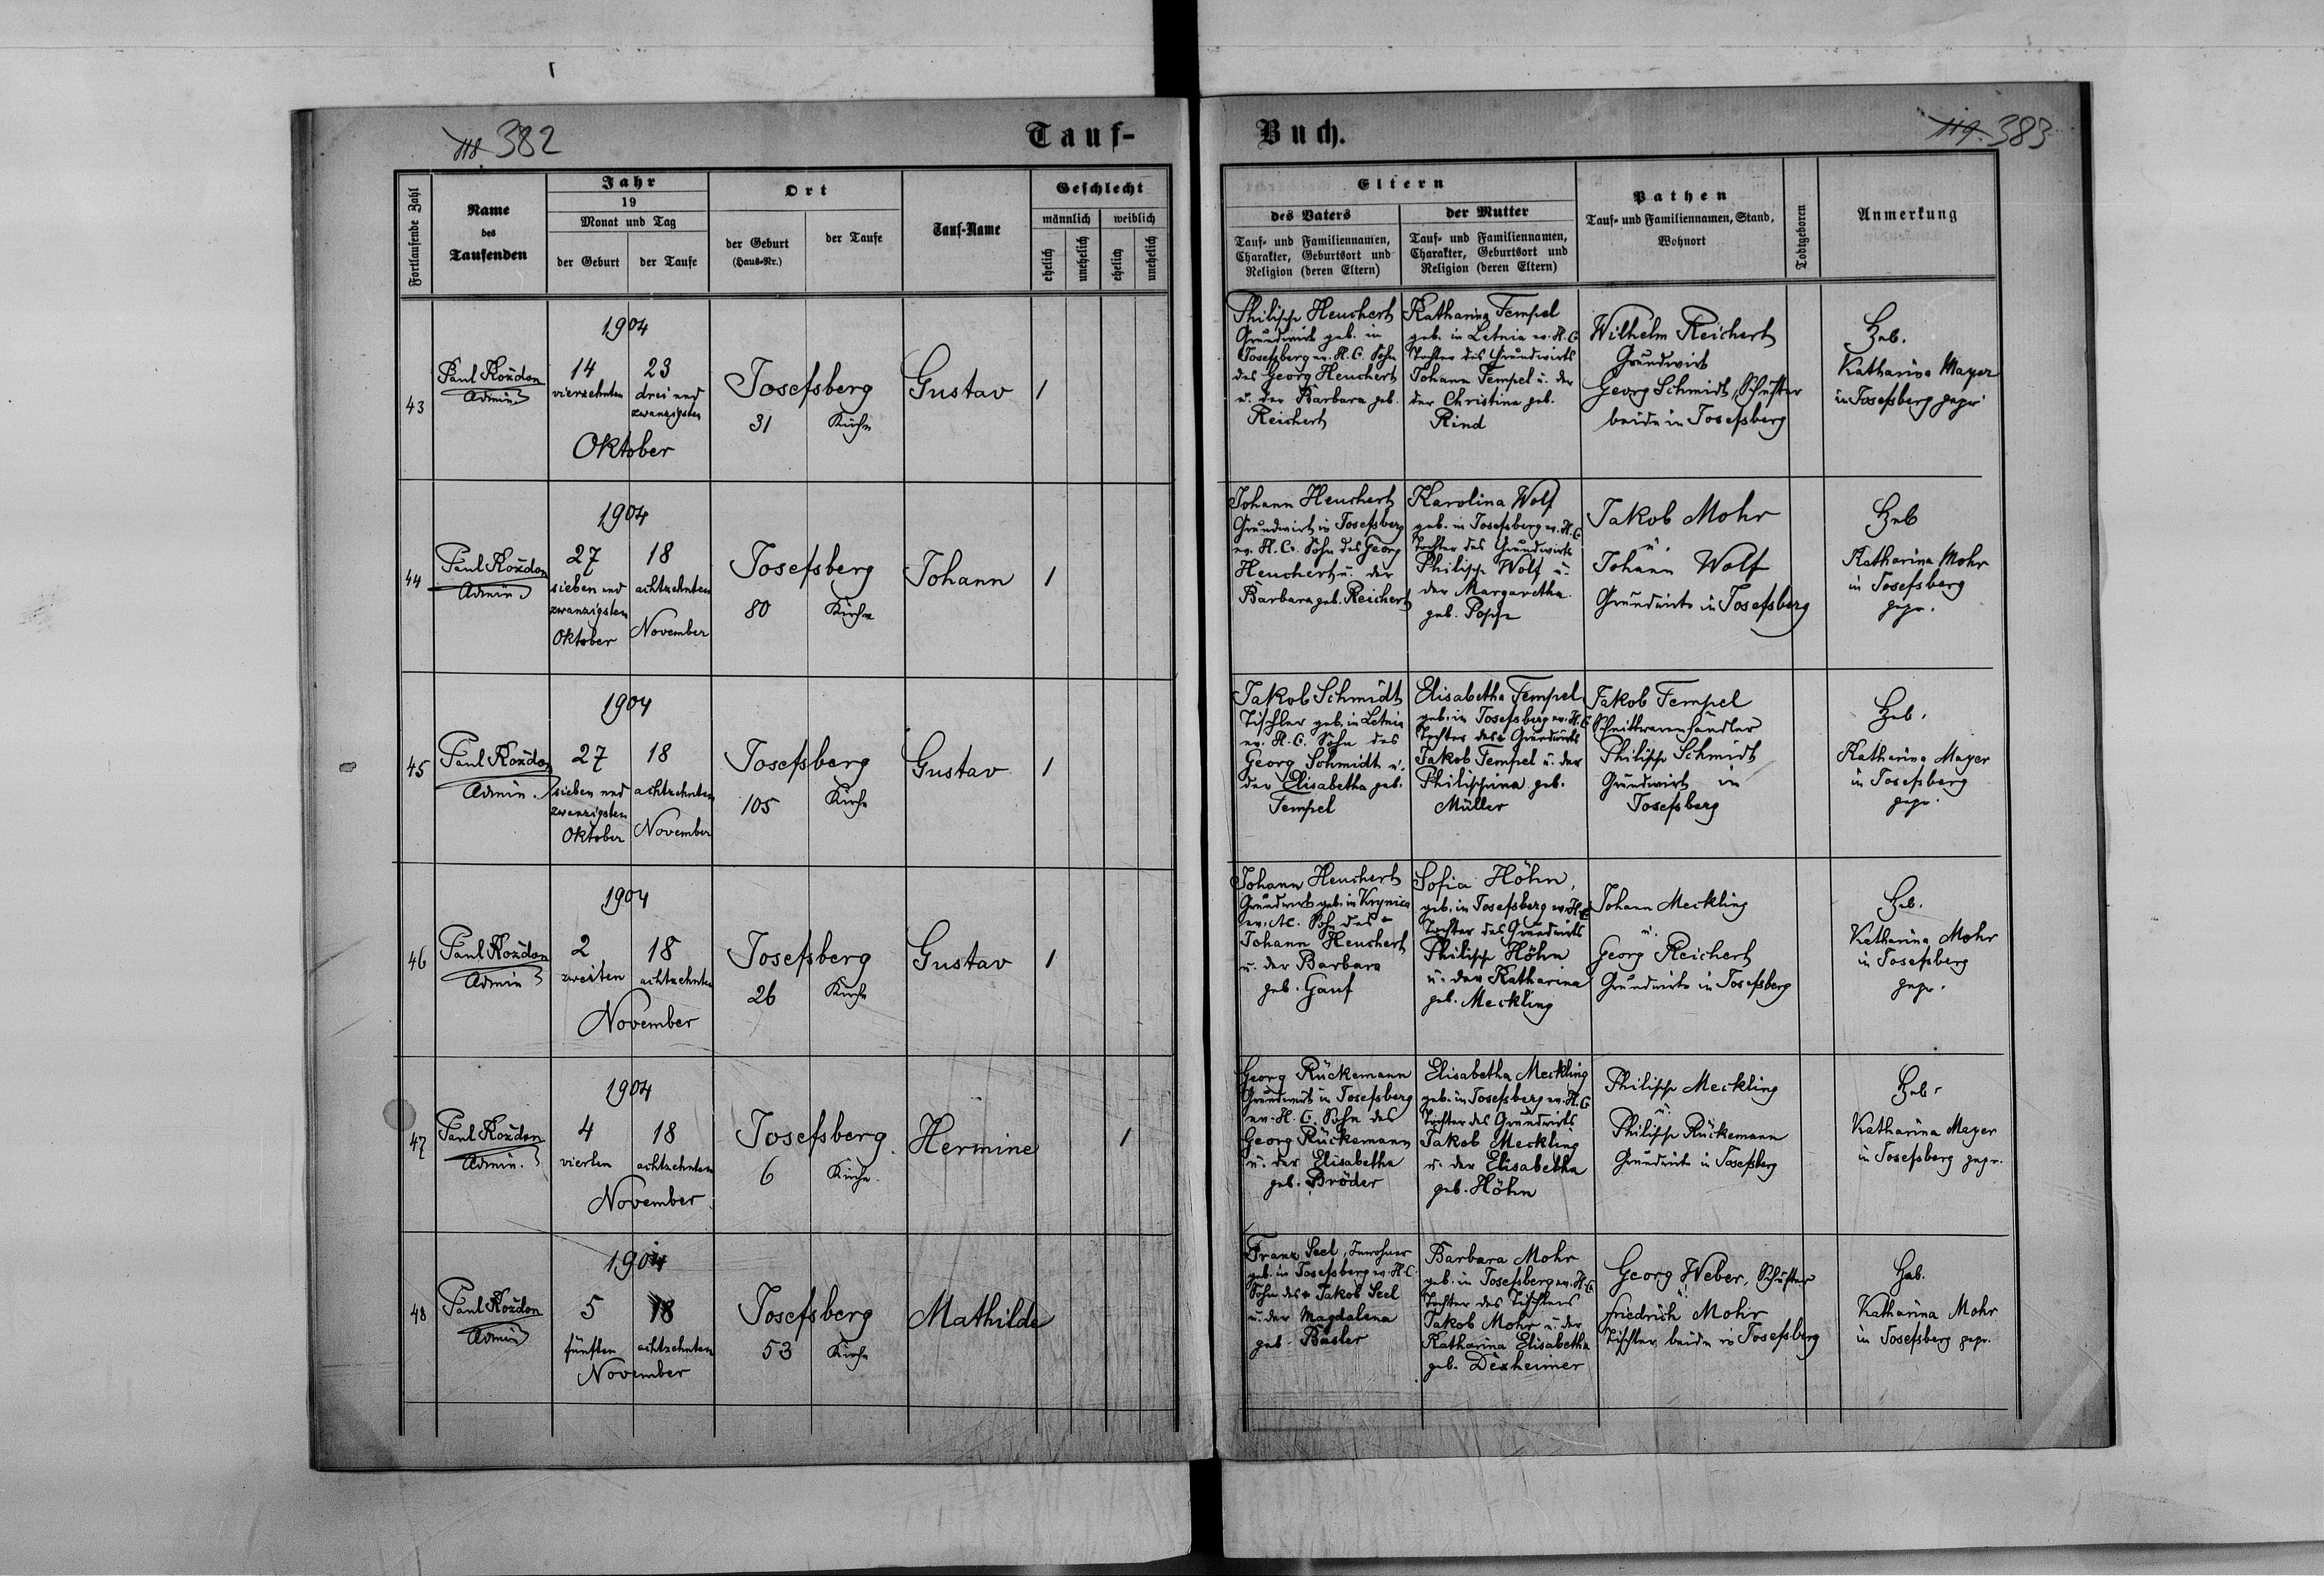 118. 382
Tauf-
Fortlaufende Zahl
Name
des
Taufenden
Jahr
19
Monat und Tag
der Geburt
der Taufe
Ort
der Geburt
(Haus-Nr.)
der Taufe
Tauf-Name
Geschlecht
männlich
weiblich
ehelich
unehelich
ehelich
unehelich
43
Paul Kozdon
Admin.
1904
14
vierzehnten
23
drei und
zwanzigsten
Oktober
Josefsberg
31
Kirche
Gustav
1
44
Paul Kozdon
Admin.
1904
27
sieben und
zwanzigsten
Oktober
18
achtzehnten
November
Josefsberg
80
Kirche
Johann
1
45
Paul Kozdon
Admin.
1904
27
sieben und
zwanzigsten
Oktober
18
achtzehnten
November
Josefsberg
105
Kirche
Gustav
1
46
Paul Kozdon
Admin
1904
2
zweiten
18
achtzehnten
November
Josefsberg
26
Kirche
Gustav
1
47
Paul Kozdon
Admin.
1904
4
vierten
18
achtzehnten
November
Josefsberg.
6
Kirche
Hermine
1
48
Paul Kozdon
Admin
1904
5
fünften
18
achtzehnten
November
Josefsberg
53
Kirche
Mathilde
Buch.
119. 383
Eltern
des Vaters
Tauf- und Familiennamen,
Charakter, Geburtsort und
Religion (deren Eltern)
der Mutter
Tauf- und Familiennamen,
Charakter, Geburtsort und
Religion (deren Eltern)
Pathen
Tauf- und Familiennamen, Stand,
Wohnort
Todtgeboren
Anmerkung
Philipp Heuchert
Grundwirt geb. in
Josefsberg ev. H.C. Sohn
des Georg Heuchert
u. der Barbara geb.
Reichert
Katharina Tempel
geb. in Letnia ev. H.C.
Tochter des Grundwirts
Johann Tempel u. der
der Christina geb.
Rind
Wilhelm Reichert
Grundwirt
Georg Schmidt, Schuster
beide in Josefsberg
Heb.
Katharina Mayer
in Josefsberg gepr.
Johann Heuchert
Grundwirt in Josefsberg
ev. H.C. Sohn des Georg
Heuchert u. der
Barbara geb. Reichert
Karolina Wolf
geb. in Josefsberg ev. H.C.
Tochter des Grundwirts
Philipp Wolf u.
der Margaretha
geb. Popp
Jakob Mohr
u.
Johann Wolf
Grundwirte in Josefsberg
Heb
Katharina Mohr
in Josefsberg
gepr.
Jakob Schmidt
Tischler geb. in Letnia
ev. H.C. Sohn des
Georg Schmidt u.
der Elisabetha geb.
Tempel
Elisabetha Tempel
geb. in Josefsberg ev. H.C.
Tochter des Grundwirts
Jakob Tempel u. der
Philippina geb.
Müller
Jakob Tempel
Schnittwarenhändler
Philipp Schmidt
Grundwirt in
Josefsberg
Heb.
Katharina Mayer
in Josefsberg
gepr.
Johann Heuchert
Grundwirt geb. in Krynica
ev. A.C. Sohn des
Johann Heuchert
u. der Barbara
geb. Gauf
Sofia Höhn,
geb. in Josefsberg ev. H.C.
Tochter des Grundwirts
Philipp Höhn
u. der Katharina
geb. Meckling
Johann Meckling
u.
Georg Reichert
Grundwirte in Josefsberg
Heb.
Katharina Mohr
in Josefsberg
gepr.
Georg Rückemann
Grundwirt in Josefsberg
ev. H.C. Sohn des
Georg Rückemann
u. der Elisabetha
geb. Bröder
Elisabetha Meckling
geb. in Josefsberg ev. H.C.
Tochter des Grundwirts
Jakob Meckling
u. der Elisabetha
geb. Höhn
Philipp Meckling
u.
Philipp Rückemann
Grundwirte in Josefsberg
Heb.
Katharina Mayer
in Josefsberg gepr.
Franz Seel, Inwohner
geb. in Josefsberg ev. H.C.
Sohn des Jakob Seel
u. der Magdalena
geb. Bäsler
Barbara Mohr
geb. in Josefsberg ev. H.C.
Tochter des Tischlers
Jakob Mohr u. der
Katharina Elisabetha
geb. Dexheimer
Georg Weber, Schuster
u.
Friedrich Mohr
Tischler beide in Josefsberg
Heb.
Katharina Mohr
in Josefsberg gepr.